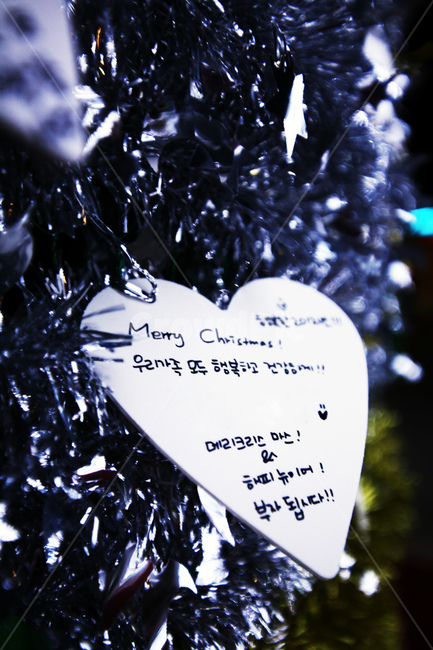 행복한
Merry Christmas!
우리가족 모두 행복하고 건강하게!!
메리크리스마스!
&
해피뉴이어!
부자 됩시다!!